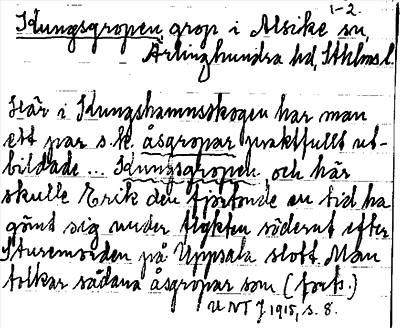 1-2.
Kungsgropen, grop i Alsike sn,
Ärlinghundra hd, Sthlms l.
Här i Kungshamnsskogen har man
ett par s.k. åsgropar praktfullt ut-
bildade ... Kungsgropen, och här
skulle Erik den fjortonde en tid ha
gömt sig under flykten söderut efter
Sturemorden på Uppsala slott. Man
tolkar sådana åsgropar som (forts.)
UNT 1915, s. 8.